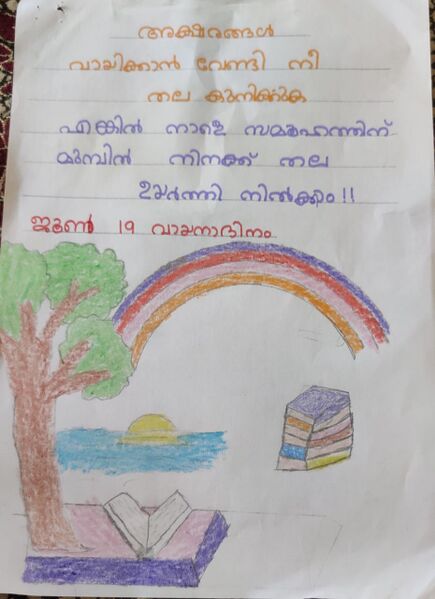 അക്ഷരങ്ങൾ
വായിക്കാൻ വേണ്ടി നീ
തല കുനിക്കുക
എങ്കിൽ നാളെ സമൂഹത്തിന്
മുമ്പിൽ നിനക്ക് തല
ഉയർത്തി നിൽക്കാം!!
ജൂൺ 19 വായനാദിനം